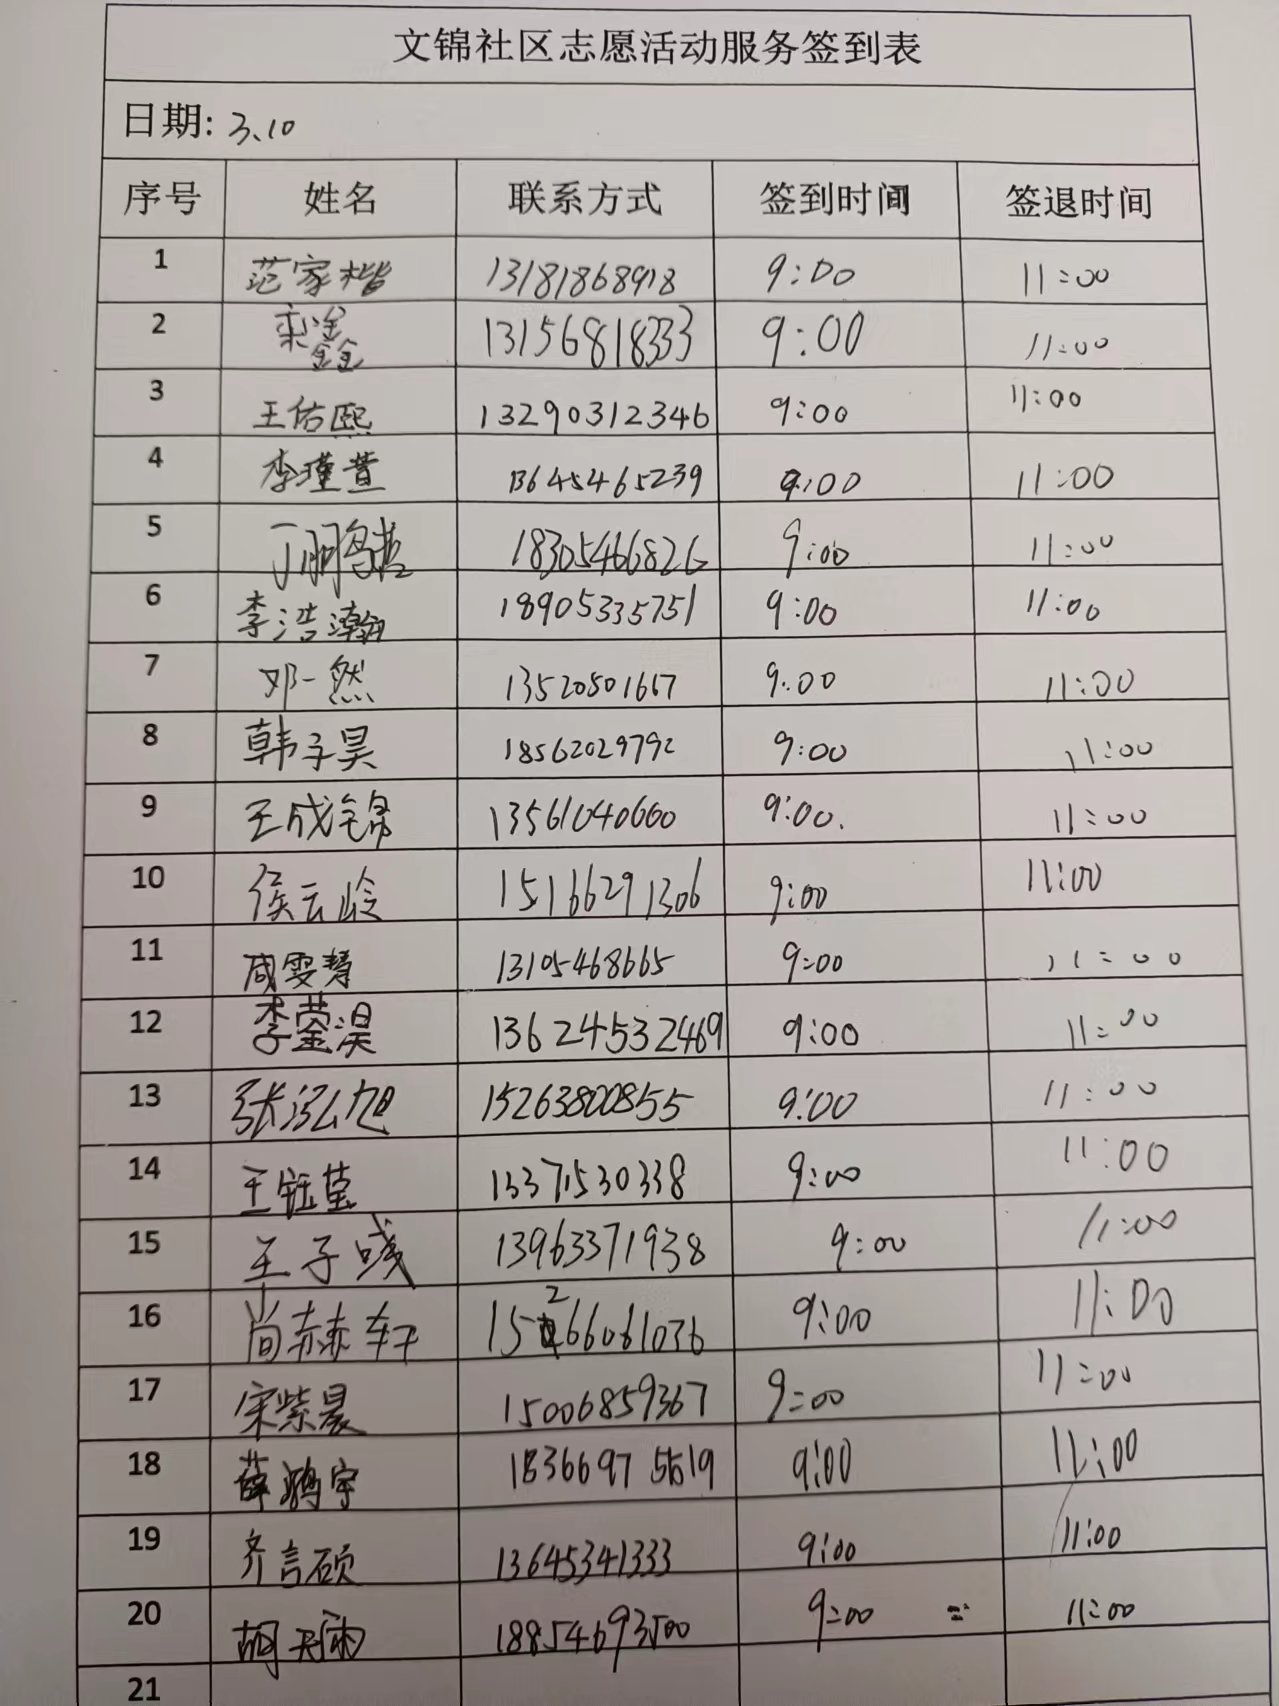 文锦社区志愿活动服务签到表
日期: 3.10
序号 姓名 联系方式 签到时间 签退时间
1 范家楷 13181868918 9:00 11:00
2 栾鑫 13156818333 9:00 11:00
3 王佑熙 13290312346 9:00 11:00
4 李瑾萱 13645465239 9:00 11:00
5 丁鹏 18305466826 9:00 11:00
6 李浩瀚 18905335751 9:00 11:00
7 邓一然 13520501667 9:00 11:00
8 韩子昊 18562029792 9:00 11:00
9 王成锦 13561040660 9:00. 11:00
10 侯云岭 15166291306 9:00 11:00
11 咸雯慧 13105468665 9:00 11:00
12 李蓥淏 13624532469 9:00 11:00
13 张泓旭 15263800855 9:00 11:00
14 王钰莹 13371530338 9:00 11:00
15 王子彧 13963371938 9:00 11:00
16 尚赫轩 15266061036 9:00 11:00
17 宋紫晨 15006859367 9:00 11:00
18 薛鸿宇 9:00 11:00
19 齐言硕 13645341333 9:00 11:00
20 胡天雨 18854693500 9:00 11:00
21